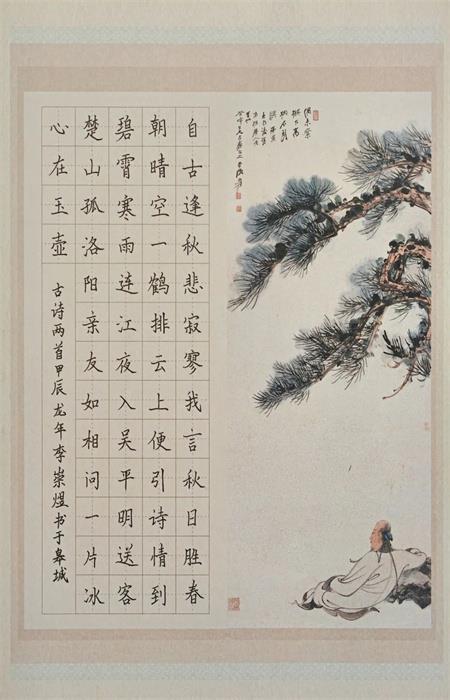 自古逢秋悲寂寥我言秋日胜春
朝晴空一鹤排云上便引诗情到
碧霄寒雨连江夜入吴平明送客
楚山孤洛阳亲友如相问一片冰
心在玉壶 古诗两首甲辰龙年李崇煜书于皋城